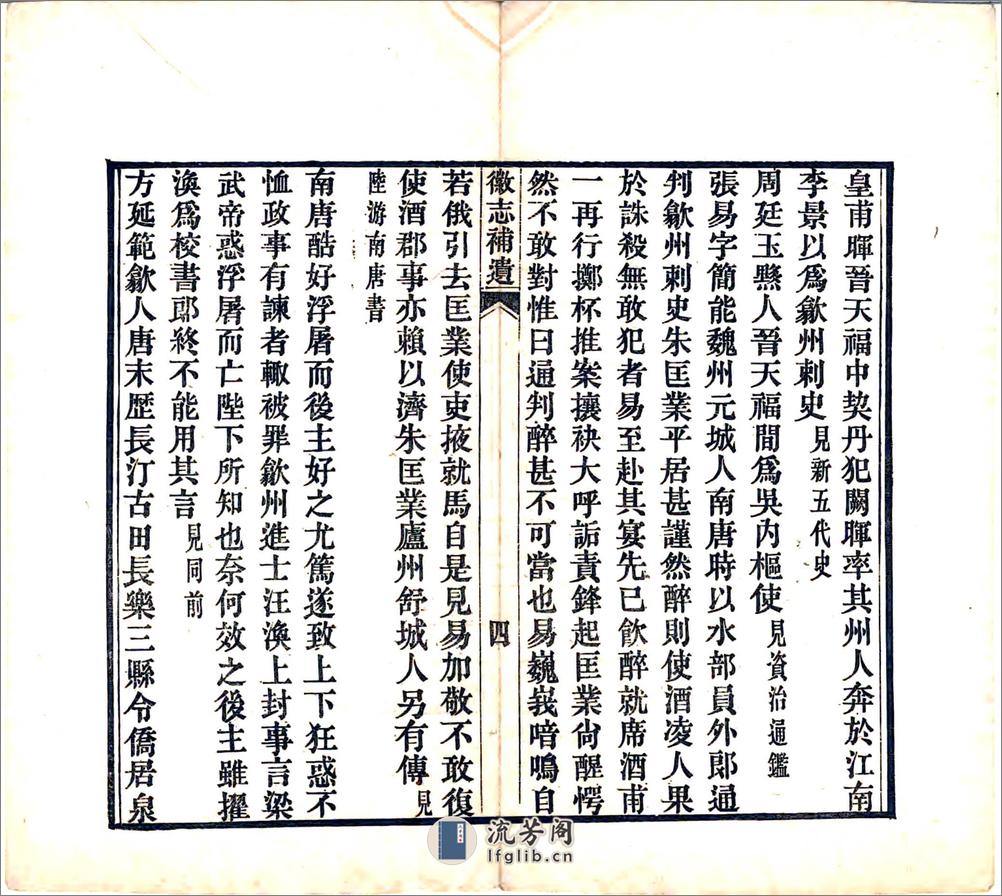 皇甫暉晉天福中契丹犯闕暉率其州人奔於江南
李景以爲歙州刺史見新五代史
周廷玉黟人晉天福間爲吳內樞使見資治通鑑
張易字簡能魏州元城人南唐時以水部員外郎通
判歙州刺史朱匡業平居甚謹然醉則使酒凌人果
於誅殺無敢犯者易至赴其宴先已飲醉就席酒甫
一再行擲杯推案攘袂大呼詬責鋒起匡業尙醒愕
然不敢對惟曰通判醉甚不可當也易巍峩喑鳴自
徽志補遺 四
若俄引去匡業使吏掖就馬自是見易加敬不敢復
使酒郡事亦賴以濟朱匡業廬州舒城人另有傳見
陸游南唐書
南唐酷好浮屠而後主好之尤篤遂致上下狂惑不
恤政事有諫者輙被罪歙州進士汪渙上封事言梁
武帝惑浮屠而亡陛下所知也奈何效之後主雖擢
渙爲校書郎終不能用其言見同前
方延範歙人唐末歷長汀古田長樂三縣令僑居泉
流芳阁
lfglib.cn